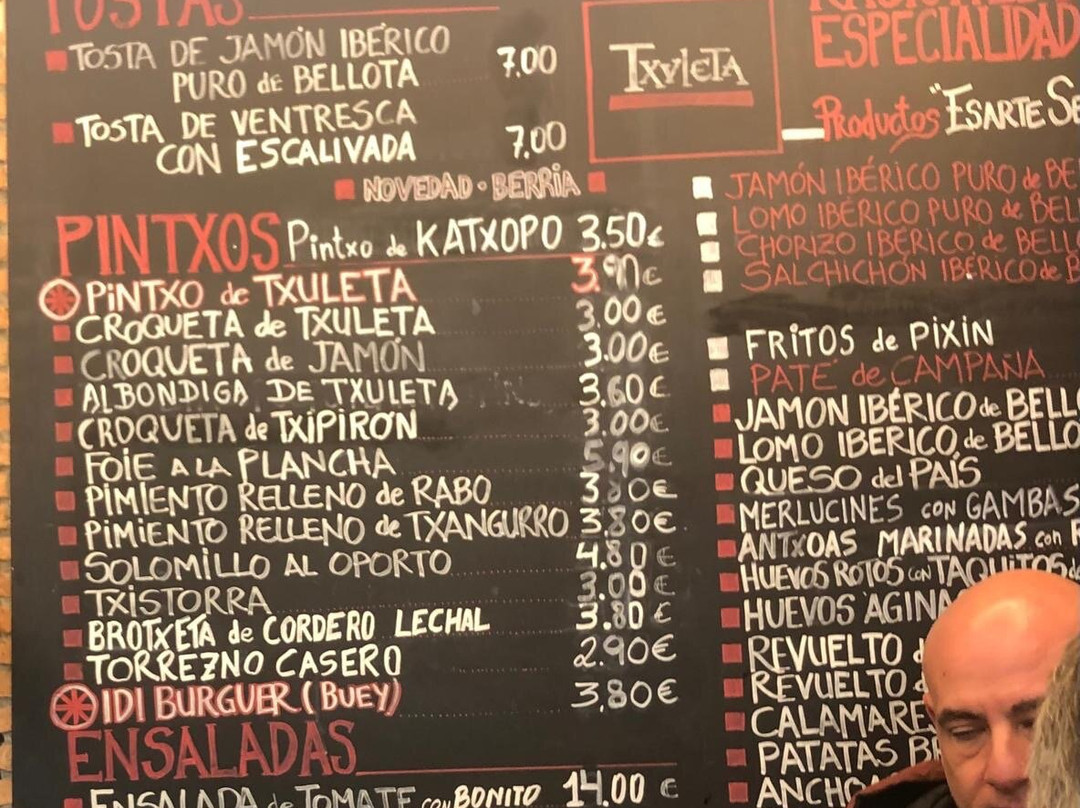 TOSTAS
TOSTA DE JAMÓN IBÉRICO
PURO de BELLOTA 7.00
TOSTA DE VENTRESCA
CON ESCALIVADA 7.00
NOVEDAD - BERRIA
PINTXOS Pintxo de KATXOPO 3.50€
PiNTXO de TXULETA 3.90€
CROQUETA de TXULETA 3.00€
CROQUETA de JAMÓN 3.00€
ALBONDIGA DE TXULETA 3.60€
CROQUETA de TXIPIRON 3.00€
FOIE A LA PLANCHA 5.90€
PIMIENTO RELLENO de RABO 3.80€
PIMIENTO RELLENO de TXANGURRO 3.80€
SOLOMILLO AL OPORTO 4.80€
TXISTORRA 3.00€
BROTXETA de CORDERO LECHAL 3.80€
TORREZNO CASERO 2.90€
IDI BURGUER (BUEY) 3,80€
ENSALADAS
ENSALADA de TOMATE con BONITO 14.00 €
TXULETA
ESPECIALIDAD
Productos "ESARTE SE
JAMÓN IBÉRICO PURO de BE
LOMO IBÉRICO PURO de BELL
CHORIZO IBÉRICO de BELL
SALCHICHÓN IBÉRICO de B
FRITOS de PIXIN
PATÉ de CAMPAÑA
JAMON IBÉRICO de BELL
LOMO IBERICO de BELLO
QUESO del PAÍS
MERLUCINES con GAMBAS
ANTXOAS MARINADAS con
HUEVOS ROTOS con TAQUITOS
HUEVOS AGINA
REVUELTO
REVUELTO
CALAMARE
PATATAS BR
ANCHO